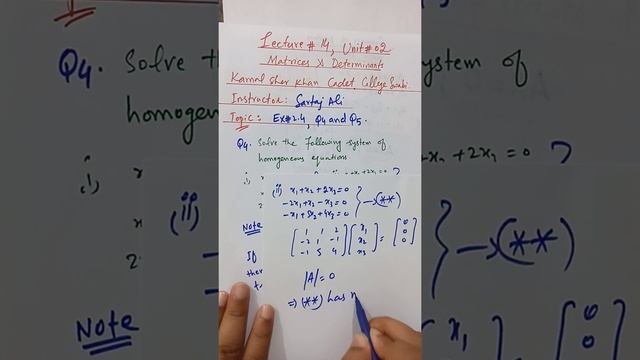 Lecture # 14, Unit # 02
Matrices & Determinants
Karnal Sher Khan Cadet College Swabi
Instructor: Sartaj Ali
Topic: Ex# 2.4, Q4 and Q5.
Q4. Solve the following system of
homogeneous equations
i)
+ 2x₂ = 0
(ii) x₁ + x₂ + 2x₃ = 0
-2x₁ + x₂ - x₃ = 0
-x₁ + 5x₂ + 4x₃ = 0
→ (**)
Note
[1 1 2
-2 1 -1
-1 5 4] [x₁
x₂
x₃] = [0
0
0]
If
|A| = 0
⇒ (**) has
Q4. Solve the
homogene
system of
+ 2x₃ = 0
(ii)
→ (**)
Note